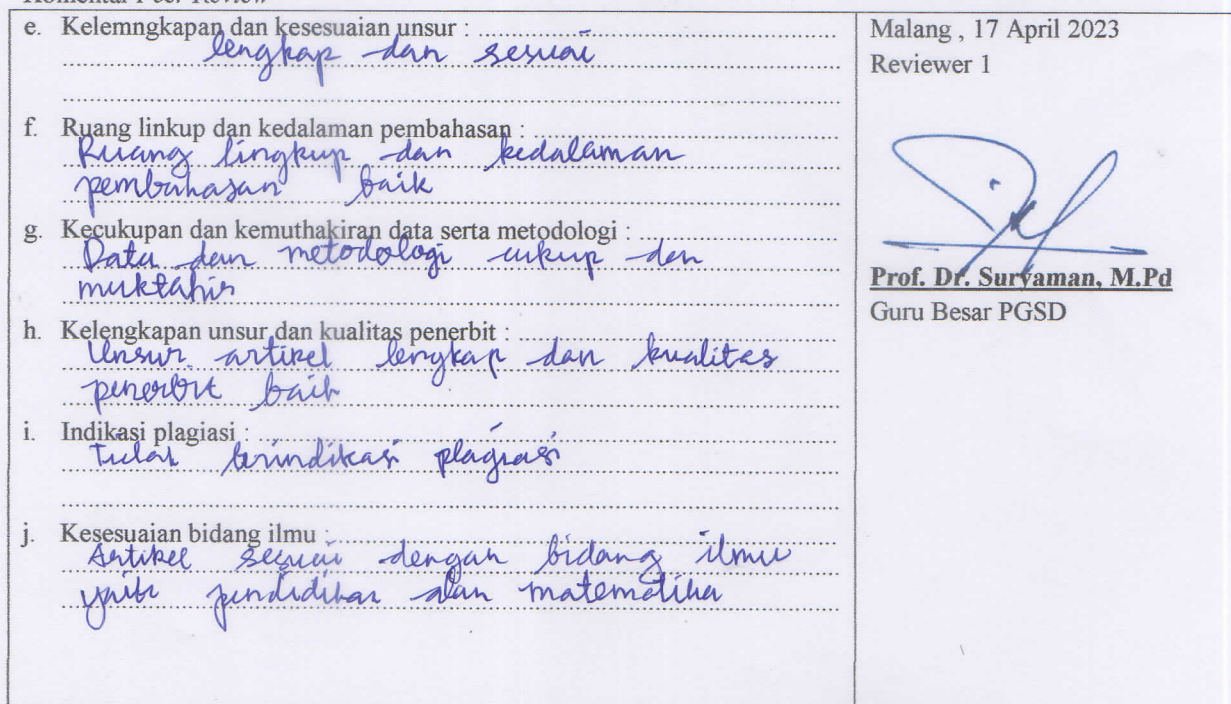 Komentar Peer Review
e. Kelemngkapan dan kesesuaian unsur : ......
lengkap dan sesuai
f. Ruang linkup dan kedalaman pembahasan : ......
Ruang lingkup dan kedalaman
pembahasan baik
g. Kecukupan dan kemuthakiran data serta metodologi : ......
Data dan metodologi cukup dan
muktahir
h. Kelengkapan unsur dan kualitas penerbit : ......
Unsur artikel lengkap dan kualitas
penerbit baik
i. Indikasi plagiasi : ......
Tidak terindikasi plagiasi
j. Kesesuaian bidang ilmu : ......
Artikel sesuai dengan bidang ilmu
yaitu pendidikan dan matematika
Malang , 17 April 2023
Reviewer 1
Prof. Dr. Suryaman, M.Pd
Guru Besar PGSD